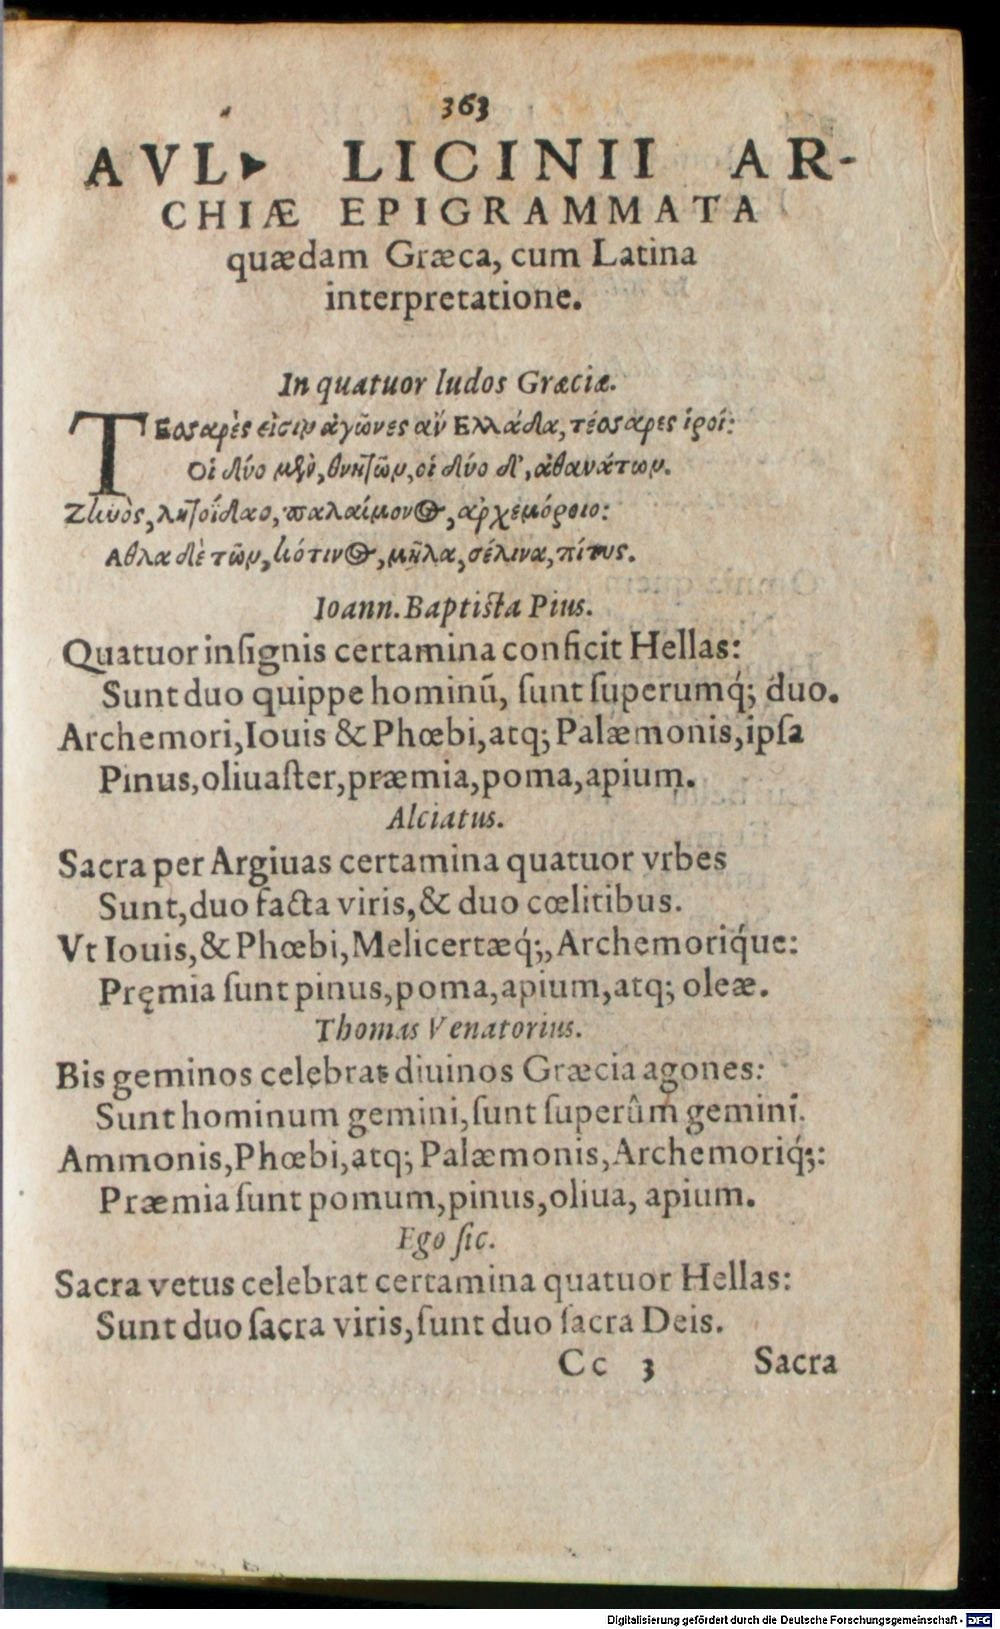 363
AVL. LICINII AR-
CHIÆ EPIGRAMMATA
quædam Græca, cum Latina
interpretatione.
In quatuor ludos Græciæ.
ΤΕσσαρές εἰσιν ἀγῶνες ἀν' Ελλάδα, τέσσαρες ἱροί:
Οἱ δύο μὲν, θνητῶν, οἱ δύο δ', ἀθανάτων.
Ζηνὸς, λητοΐδαο, παλαίμονος, ἀρχεμόροιο:
Αθλα δὲ τῶν, κότινος, μῆλα, σέλινα, πίτυς.
Ioann. Baptista Pius.
Quatuor inſignis certamina conficit Hellas:
Sunt duo quippe hominũ, ſunt ſuperumq́; duo.
Archemori, Iouis & Phœbi, atq; Palæmonis, ipſa
Pinus, oliuaſter, præmia, poma, apium.
Alciatus.
Sacra per Argiuas certamina quatuor vrbes
Sunt, duo facta viris, & duo cœlitibus.
Vt Iouis, & Phœbi, Melicertæq́;, Archemoriq́ue:
Pręmia ſunt pinus, poma, apium, atq; oleæ.
Thomas Venatorius.
Bis geminos celebrat diuinos Græcia agones:
Sunt hominum gemini, ſunt ſuperûm gemini.
Ammonis, Phœbi, atq; Palæmonis, Archemoriq́;:
Præmia ſunt pomum, pinus, oliua, apium.
Ego ſic.
Sacra vetus celebrat certamina quatuor Hellas:
Sunt duo ſacra viris, ſunt duo ſacra Deis.
Cc 3 Sacra
Digitalisierung gefördert durch die Deutsche Forschungsgemeinschaft - DFG